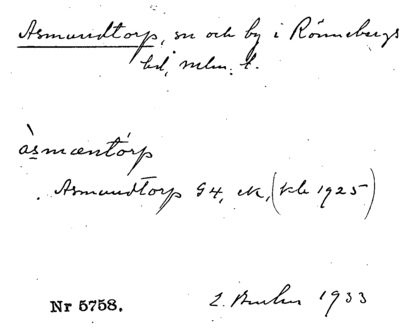 Asmundtorp, sn och by i Rönnebergs
hd, mlm. l.
àsmæntórp
Asmundtorp G4, ek, (kle 1925)
Nr 5758.
1933